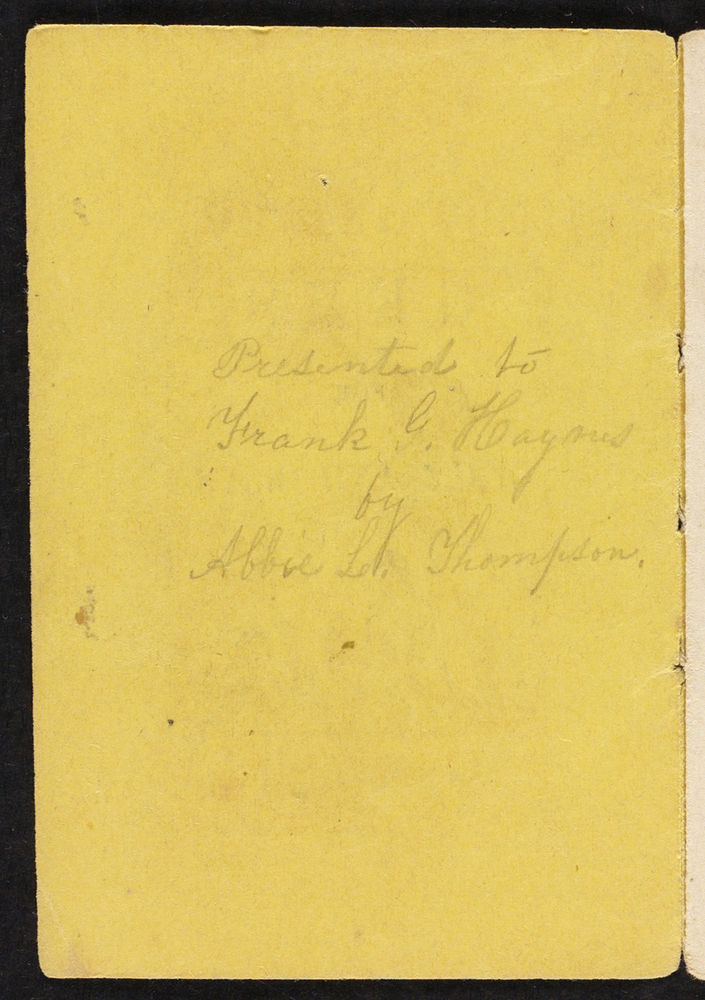 Presented to
Frank G. Haynes
by
Abbie L. Thompson.